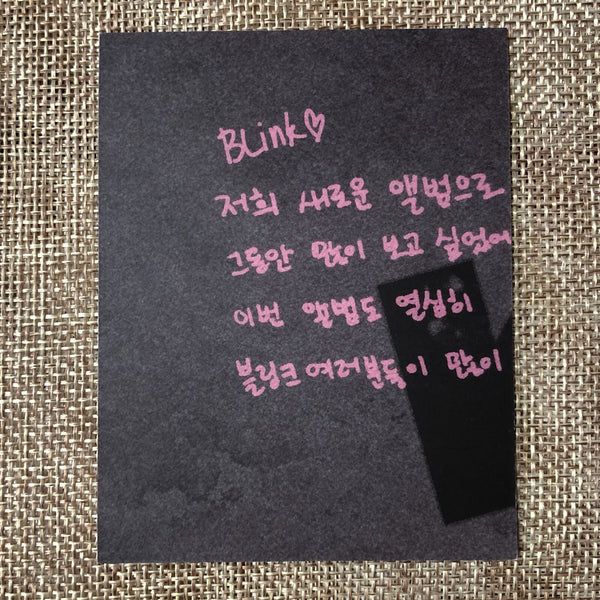 Blink♡
저희 새로운 앨범으로
그동안 많이 보고 싶었어
이번 앨범도 열심히
블링크 여러분들이 많이